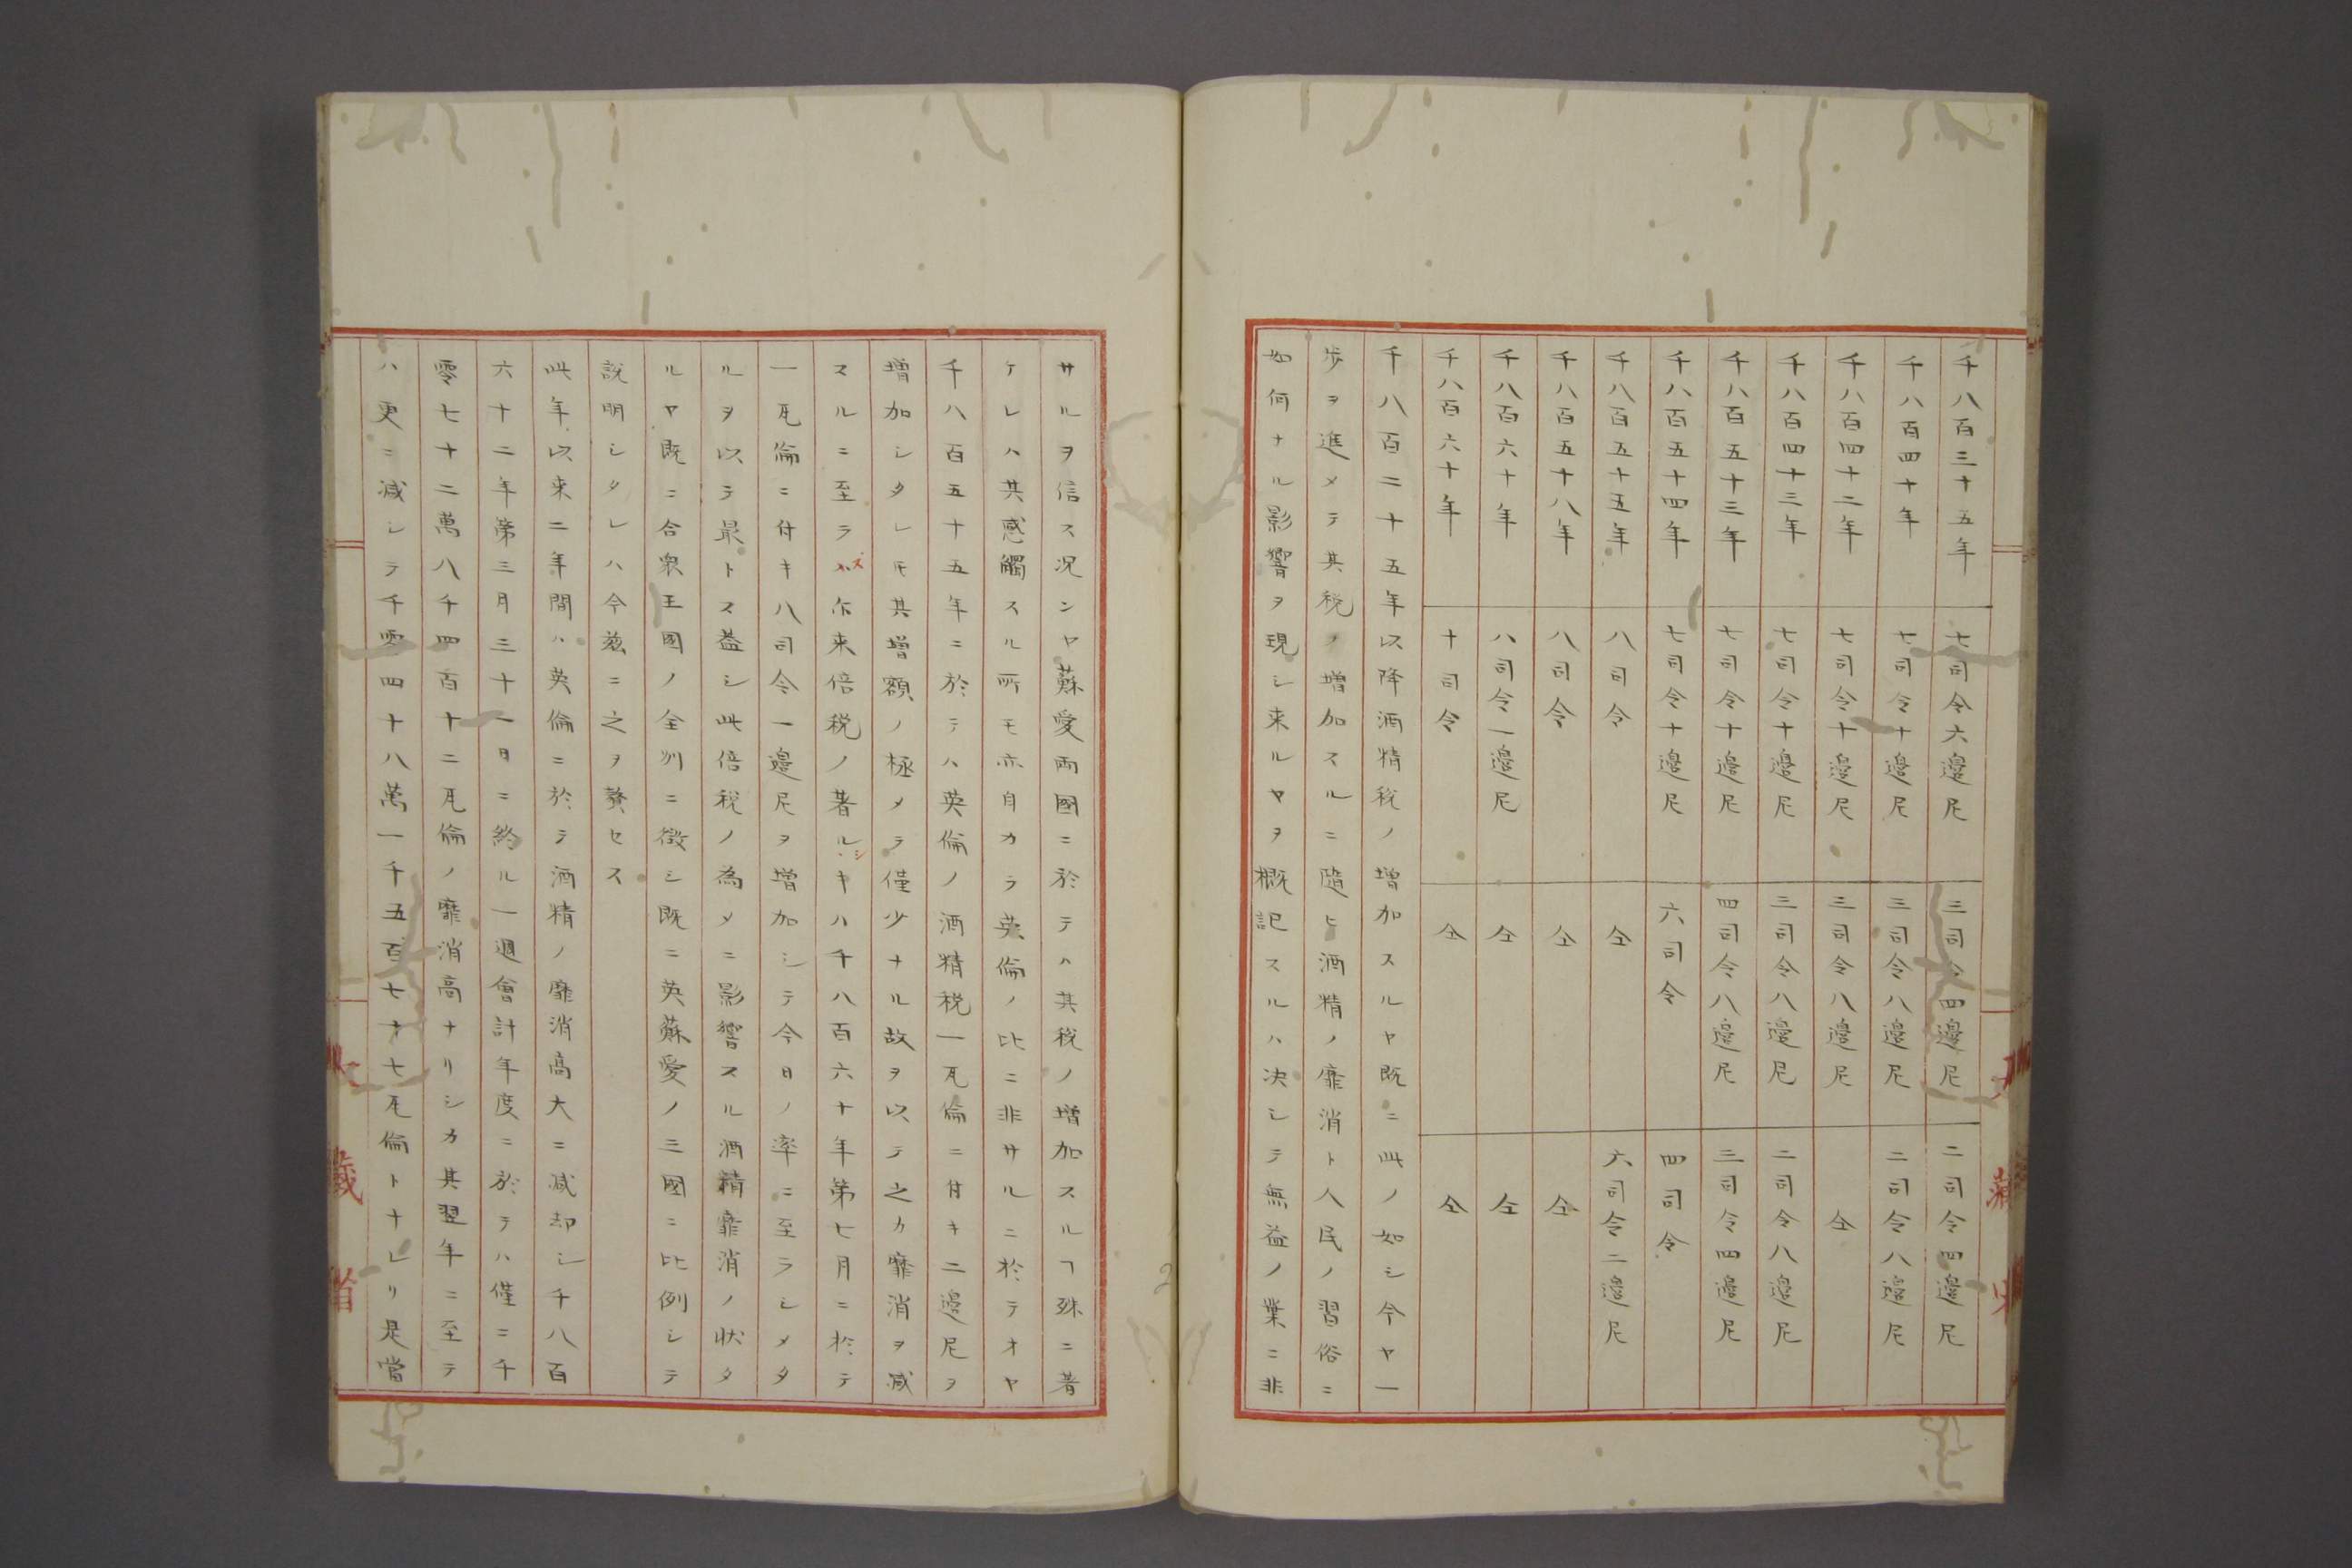 千八百三十五年 七司令六邊尼 三司令四邊尼 二司令四邊尼
千八百四十年 七司令十邊尼 三司令八邊尼 二司令八邊尼
千八百四十二年 七司令十邊尼 三司令八邊尼 仝
千八百四十三年 七司令十邊尼 三司令八邊尼 二司令八邊尼
千八百五十三年 七司令十邊尼 四司令八邊尼 三司令四邊尼
千八百五十四年 七司令十邊尼 六司令 四司令
千八百五十五年 八司令 仝 六司令二邊尼
千八百五十八年 八司令 仝 仝
千八百六十年 八司令一邊尼 仝 仝
千八百六十年 十司令 仝 仝
千八百二十五年以降酒精税ノ増加スルヤ既ニ此ノ如シ今ヤ一
歩ヲ進メテ其税ヲ増加スルニ隨ヒ酒精ノ靡消ト人民ノ習俗ニ
如何ナル影響ヲ現シ来ルヤヲ概記スルハ决シテ無益ノ業ニ非
サルヲ信ス况ンヤ蘇愛両國ニ於テハ其税ノ増加スルヿ殊ニ著
ケレハ其感觸スル所モ亦自カラ英倫ノ比ニ非サルニ於テオヤ
千八百五十五年ニ於テハ英倫ノ酒精税一瓦倫ニ付キ二邊尼ヲ
増加シタレモ其増額ノ極メテ僅少ナル故ヲ以テ之カ靡消ヲ减
スルニ至ラス尓来倍税ノ著シキハ千八百六十年第七月ニ於テ
一瓦倫ニ付キ八司令一邊尼ヲ増加シテ今日ノ率ニ至ラシメタ
ルヲ以テ最トス葢シ此倍税ノ為メニ影響スル酒精靡消ノ状タ
ルヤ既ニ合衆王國ノ全州ニ徴シ既ニ英蘇愛ノ三國ニ比例シテ
説明シタレハ今茲ニ之ヲ贅セス
此年以来二年間ハ英倫ニ於テ酒精ノ靡消高大ニ减却シ千八百
六十二年第三月三十一日ニ終ル一週會計年度ニ於テハ僅ニ千
零七十二萬八千四百十二瓦倫ノ靡消高ナリシカ其翌年ニ至テ
ハ更ニ减シテ千零四十八萬一千五百七十七瓦倫トナレリ是當